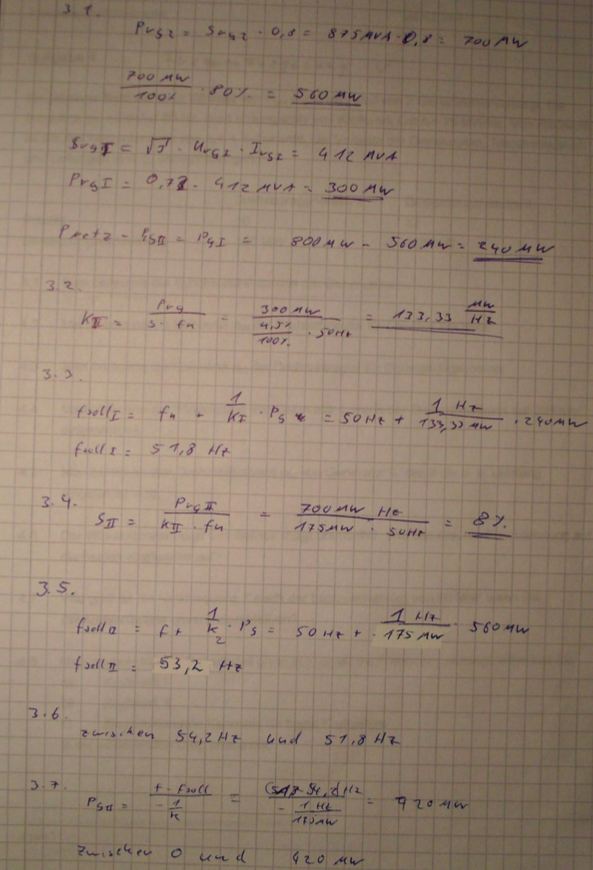 3.1.
PrG2 = SrG2 · 0,8 = 875MVA · 0,8 = 700 MW
700 MW / 100% · 80% = 560 MW
SrGI = √3 · UrG1 · IrG1 = 412 MVA
PrGI = 0,72 · 412 MVA = 300 MW
Pnetz - PGII = PGI = 800MW - 560 MW = 240 MW
3.2.
KII = PrG / s · fn = 300 MW / 4,5% / 100% · 50Hz = 133,33 MW / Hz
3.3.
fsollI = fn + 1 / KI · PG = 50 Hz + 1 Hz / 133,33 MW · 240MW
fsollI = 51,8 Hz
3.4.
SII = PrGII / KII · fn = 700MW Hz / 175MW · 50Hz = 8%
3.5.
fsollII = f + 1 / K2 · PG = 50 Hz + 1 Hz / 175 MW · 560 MW
fsollII = 53,2 Hz
3.6.
zwischen 54,2 Hz und 51,8 Hz
3.7.
PGII = f - fsoll / - 1 / K = Hz / - 1 Hz / = 420 MW
zwischen 0 und 420 MW